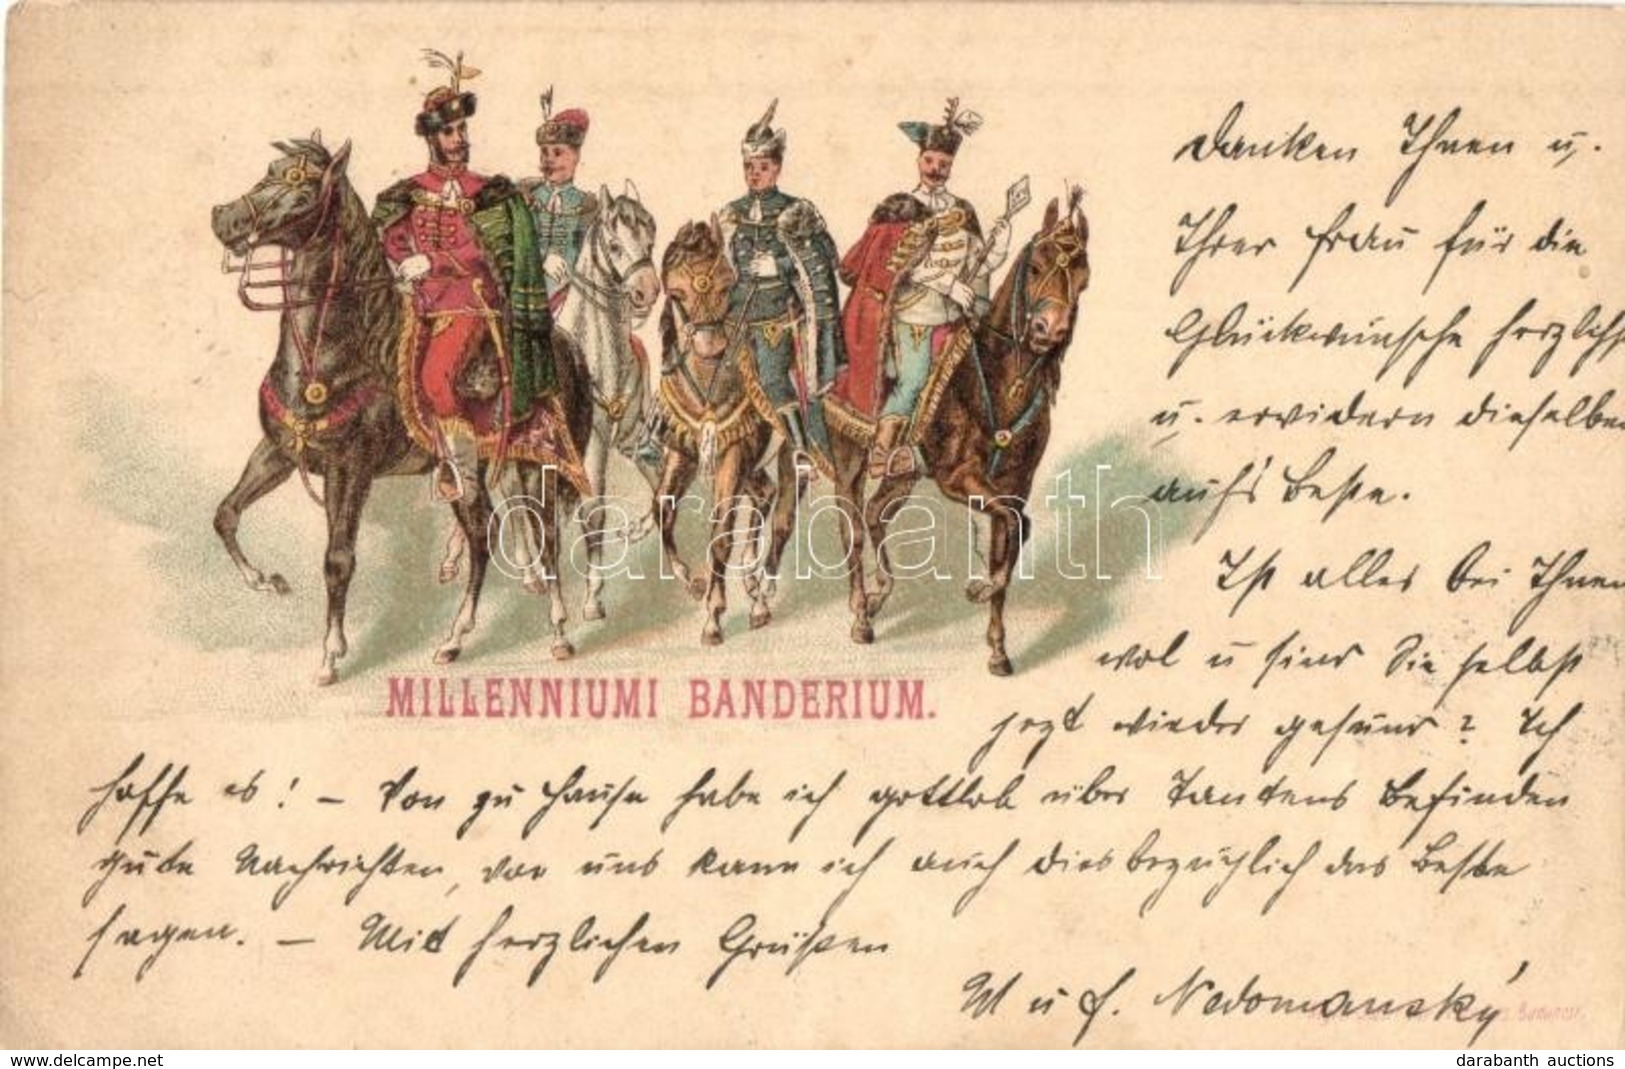 Danken Ihnen u.
Ihrer Frau für die
Glückwünsche herzlichst
u. erwidern dieselben
auf's Beste.
Ist alles bei Ihnen
wol u sind Sie selbst
jezt wieder gesund? Ich
hoffe es! – Von zu Hause habe ich gottlob über Tantens Befinden
gute Nachrichten, von uns kann ich auch diesbezüglich das Beste
sagen. – Mit herzlichen Grüßen
M u F. Nedomanský
MILLENNIUMI BANDERIUM.
darabanth
delcampe.net
darabanth auctions